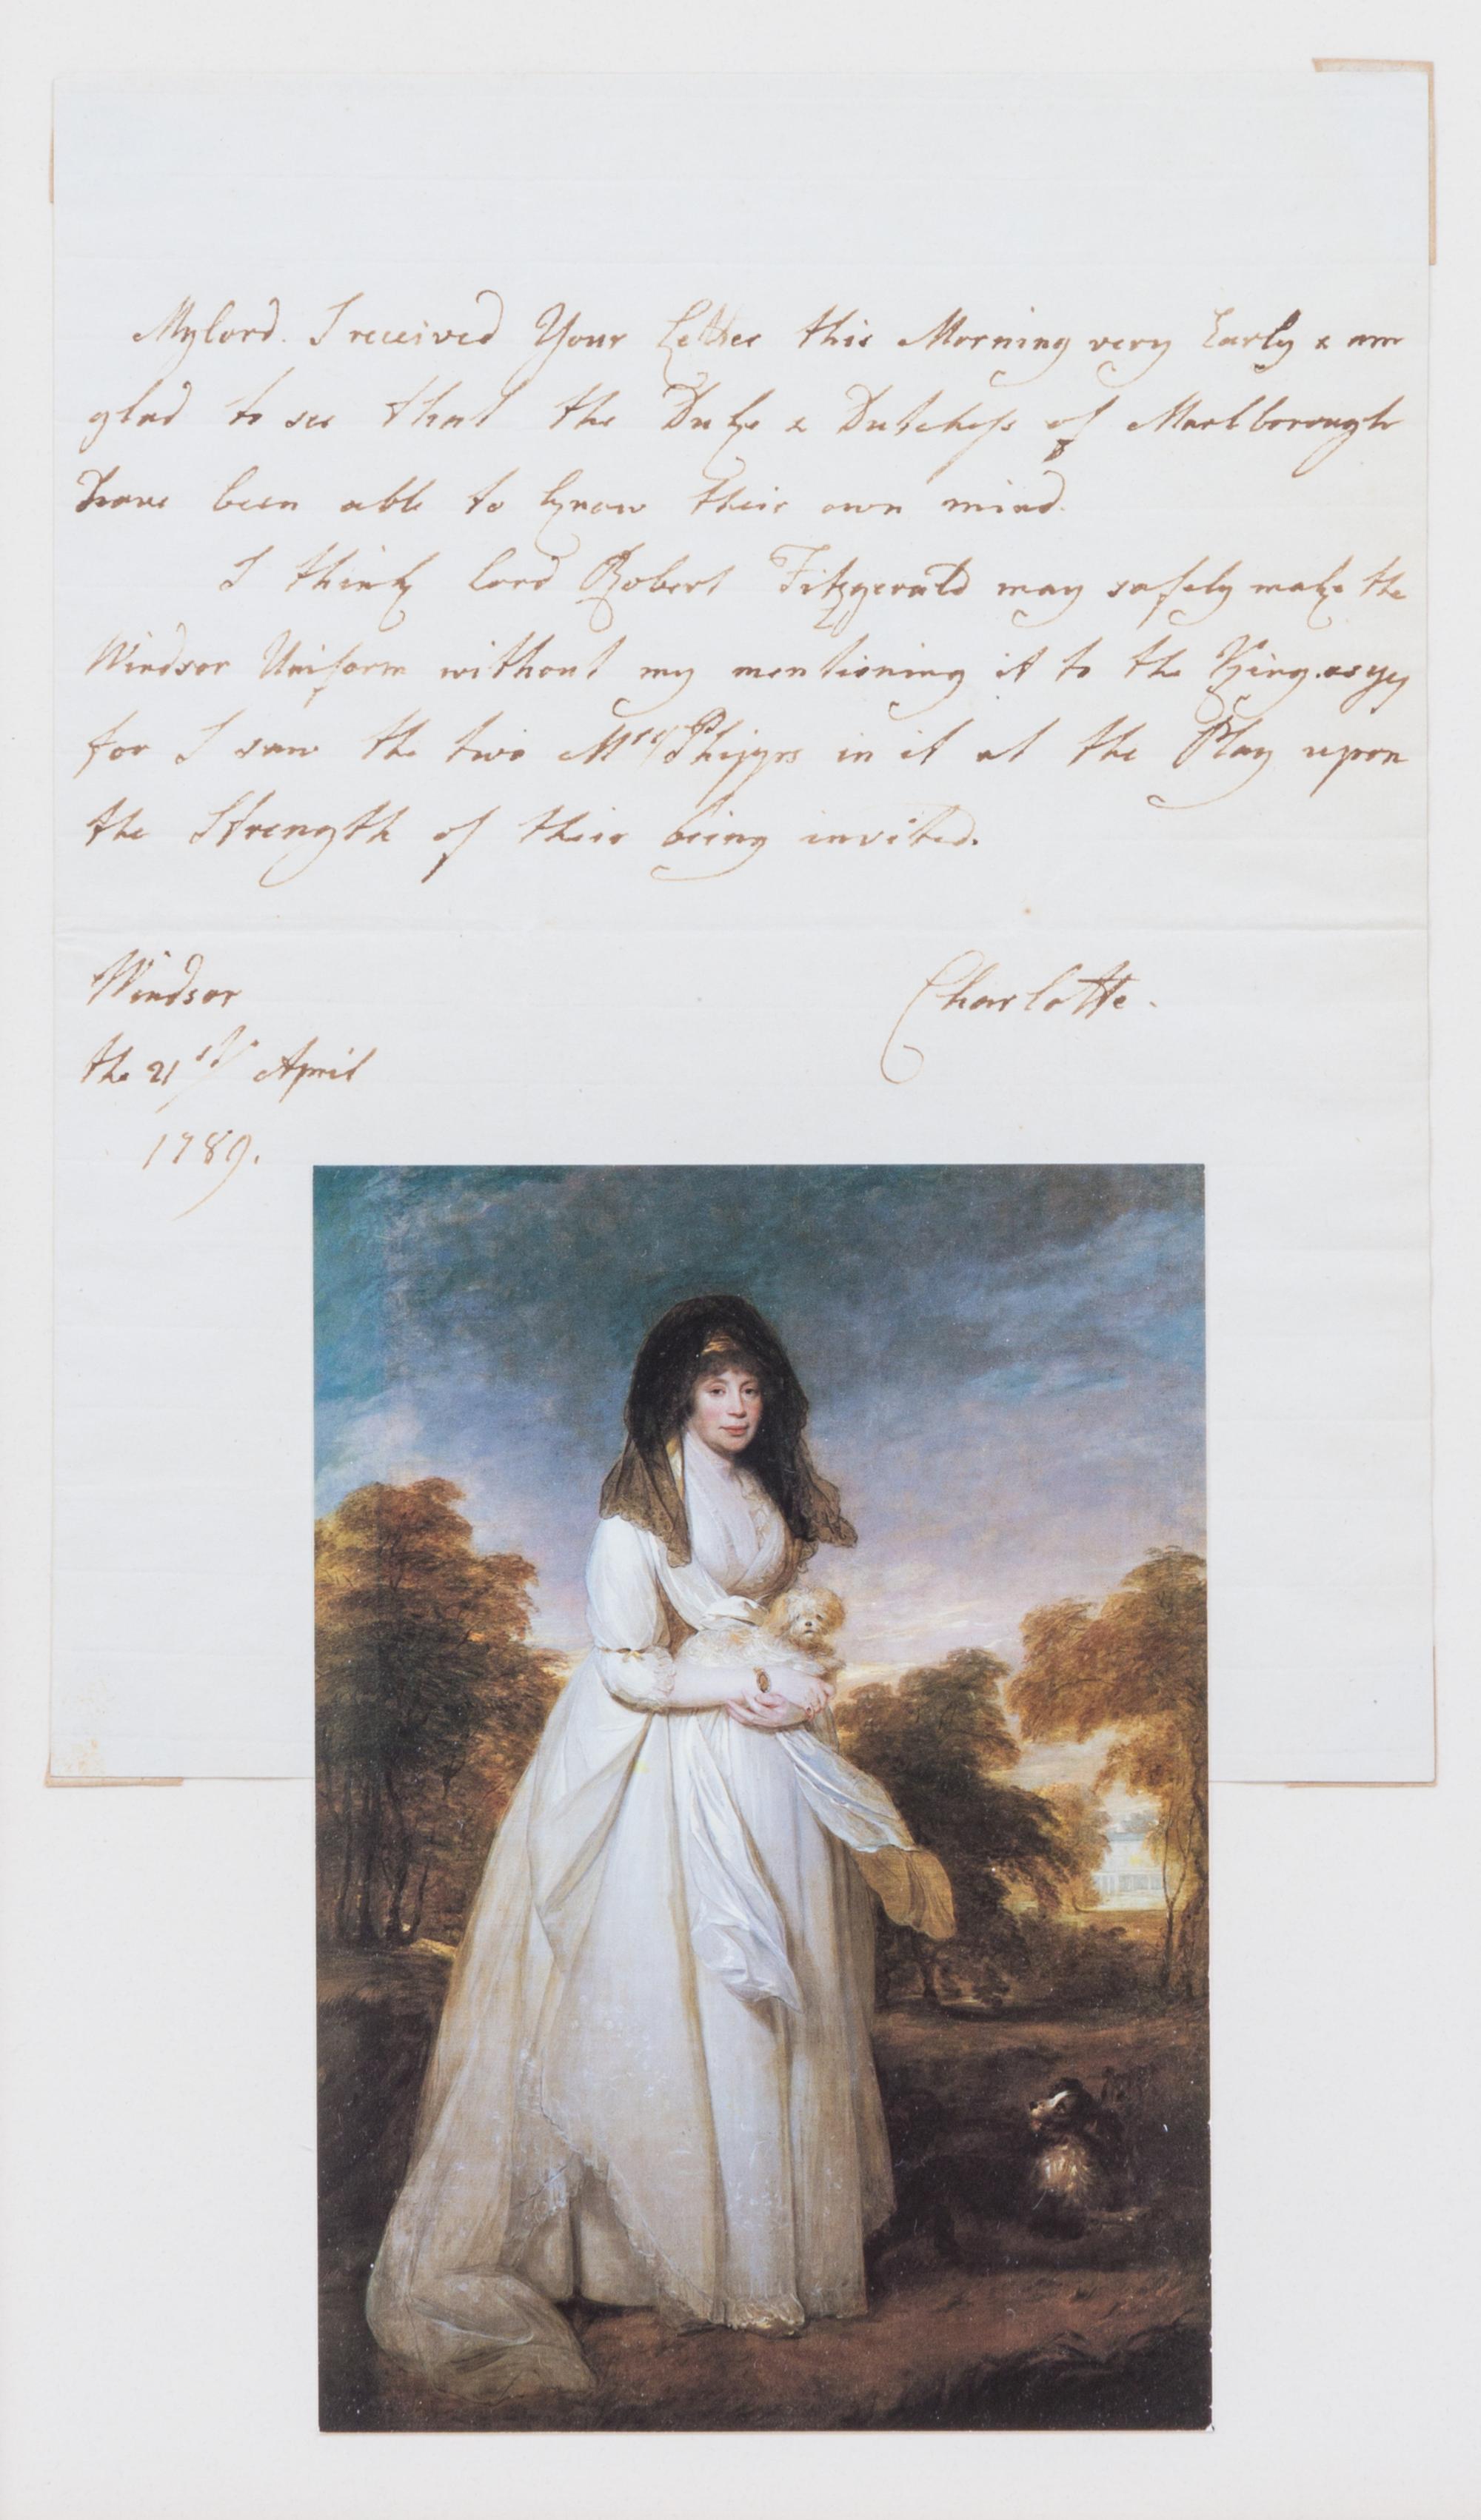 Mylord. I received Your Letter this Morning very Early & am
glad to see that the Duke & Dutchess of Marlborough
have been able to know their own mind.
I think Lord Robert Fitzgerald may safely make the
Windsor Uniform without my mentioning it to the King.
for I saw the two Mrs Phipps in it at the Play upon
the Strength of their being invited.
Windsor
Charlotte.
the 21st April
1789.